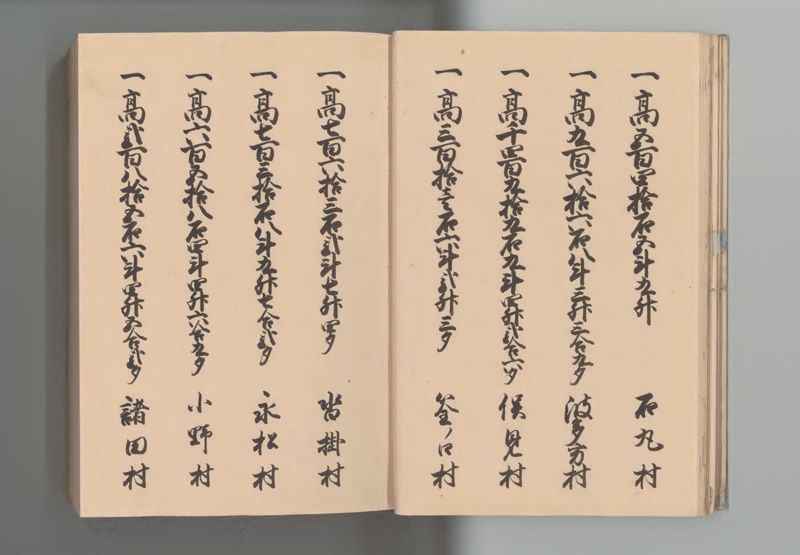 一高五百四拾石五斗九升 石丸村
一高九百六拾六石八斗三升三合九夕 波多方村
一高千四百九拾九石九斗四升弐合六夕 俣見村
一高三百拾壱石六斗弐升三夕 釜ノ口村
一高七百六拾三石弐斗七升四夕 沓掛村
一高七百三拾石八斗九升七合弐夕 永松村
一高六百五拾八石四斗四升六合九夕 小野村
一高弐百八拾五石六斗四升五合弐夕 諸田村